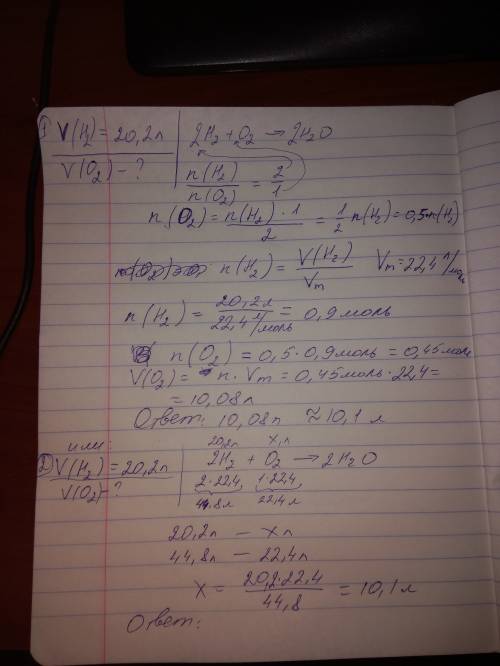 1) V(H2) = 20,2л
V(O2) - ?
2H2 + O2 → 2H2O
n(H2)/n(O2) = 2/1
n(O2) = n(H2)·1/2 = 1/2 n(H2) = 0,5·n(H2)
n(H2) = V(H2)/Vm Vm = 22,4 л/моль
n(H2) = 20,2л/22,4 л/моль = 0,9 моль
n(O2) = 0,5·0,9моль = 0,45моль
V(O2) = n·Vm = 0,45моль·22,4 =
= 10,08л
Ответ: 10,08л ≈ 10,1 л
или
2) V(H2) = 20,2л
V(O2) - ?
20,2л x,л
2H2 + O2 → 2H2O
2·22,4, 1·22,4,
44,8л 22,4л
20,2л — xл
44,8л — 22,4л
x = 20,2·22,4/44,8 = 10,1л
Ответ: